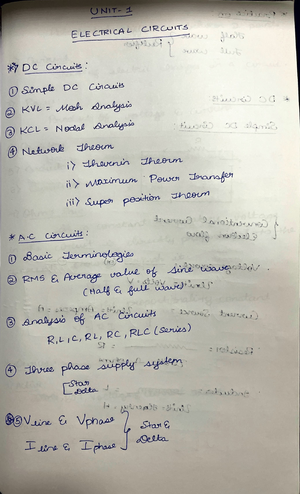 UNIT-1
ELECTRICAL CIRCUITS
* DC Circuits:
① Simple DC Circuits
② KVL = Mesh Analysis
③ KCL = Nodal Analysis
④ Network Theorm
i) Thevenin Theorm
ii) Maximum Power Transfer
iii) Super position Theorm
* A.C Circuits:
① Basic Terminologies
② RMS & Average value of sine wave
(Half & full wave)
③ Analysis of AC Circuits
R, L, C, RL, RC, RLC (Series)
④ Three phase supply system
Star
Delta
⑤ Vline & Vphase
Iline & Iphase
Star &
Delta